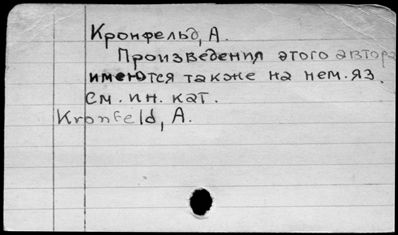 Кронфельд, А.
Произведения этого автора
имеются также на нем. яз.
см. ин. кат.
Kronfeld, A.